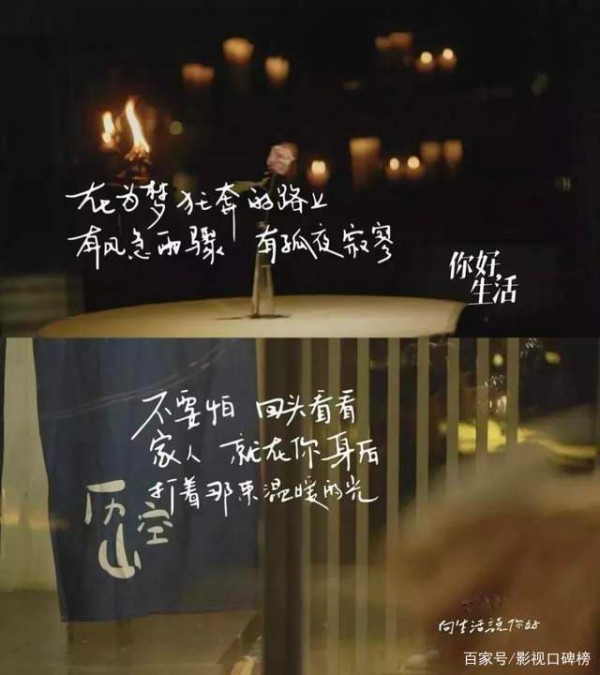 在为梦狂奔的路上
有风急雨骤 有孤夜寂寥
你好
生活
不要怕 回头看看
家人 就在你身后
打着那束温暖的光
向生活说你好
百家号/影视口碑榜